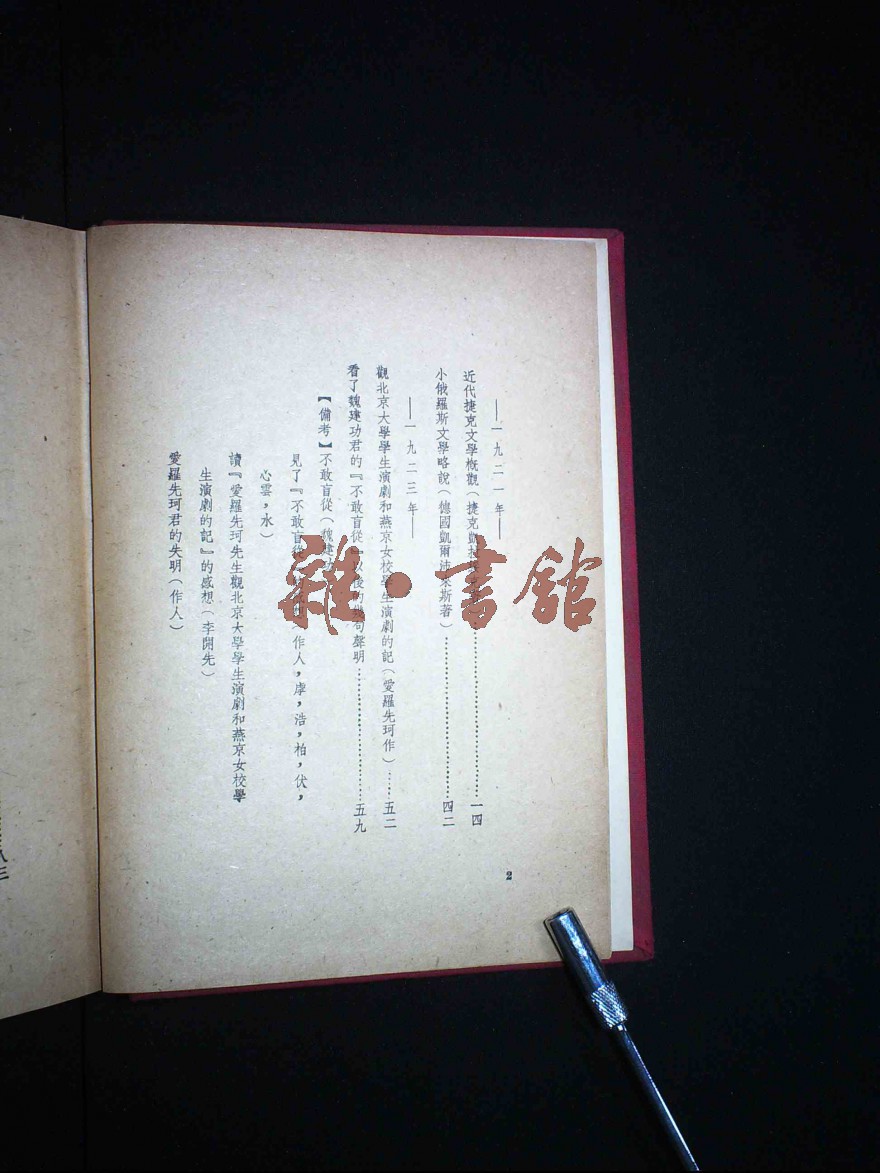 ——一九二一年——
近代捷克文學概觀(捷克凱拉綏……一四
小俄羅斯文學略說(德國凱爾沛來斯著)……四二
——一九二三年——
觀北京大學學生演劇和燕京女校學生演劇的記(愛羅先珂作)……五二
看了魏建功君的『不敢盲從』以後的幾句聲明……五九
【備考】不敢盲從(魏建功
見了『不敢盲從 作人,㡽,浩,柏,伏,
心雲,水)
讀『愛羅先珂先生觀北京大學學生演劇和燕京女校學
生演劇的記』的感想(李開先)
愛羅先珂君的失明(作人)
2
八三
雜·書館